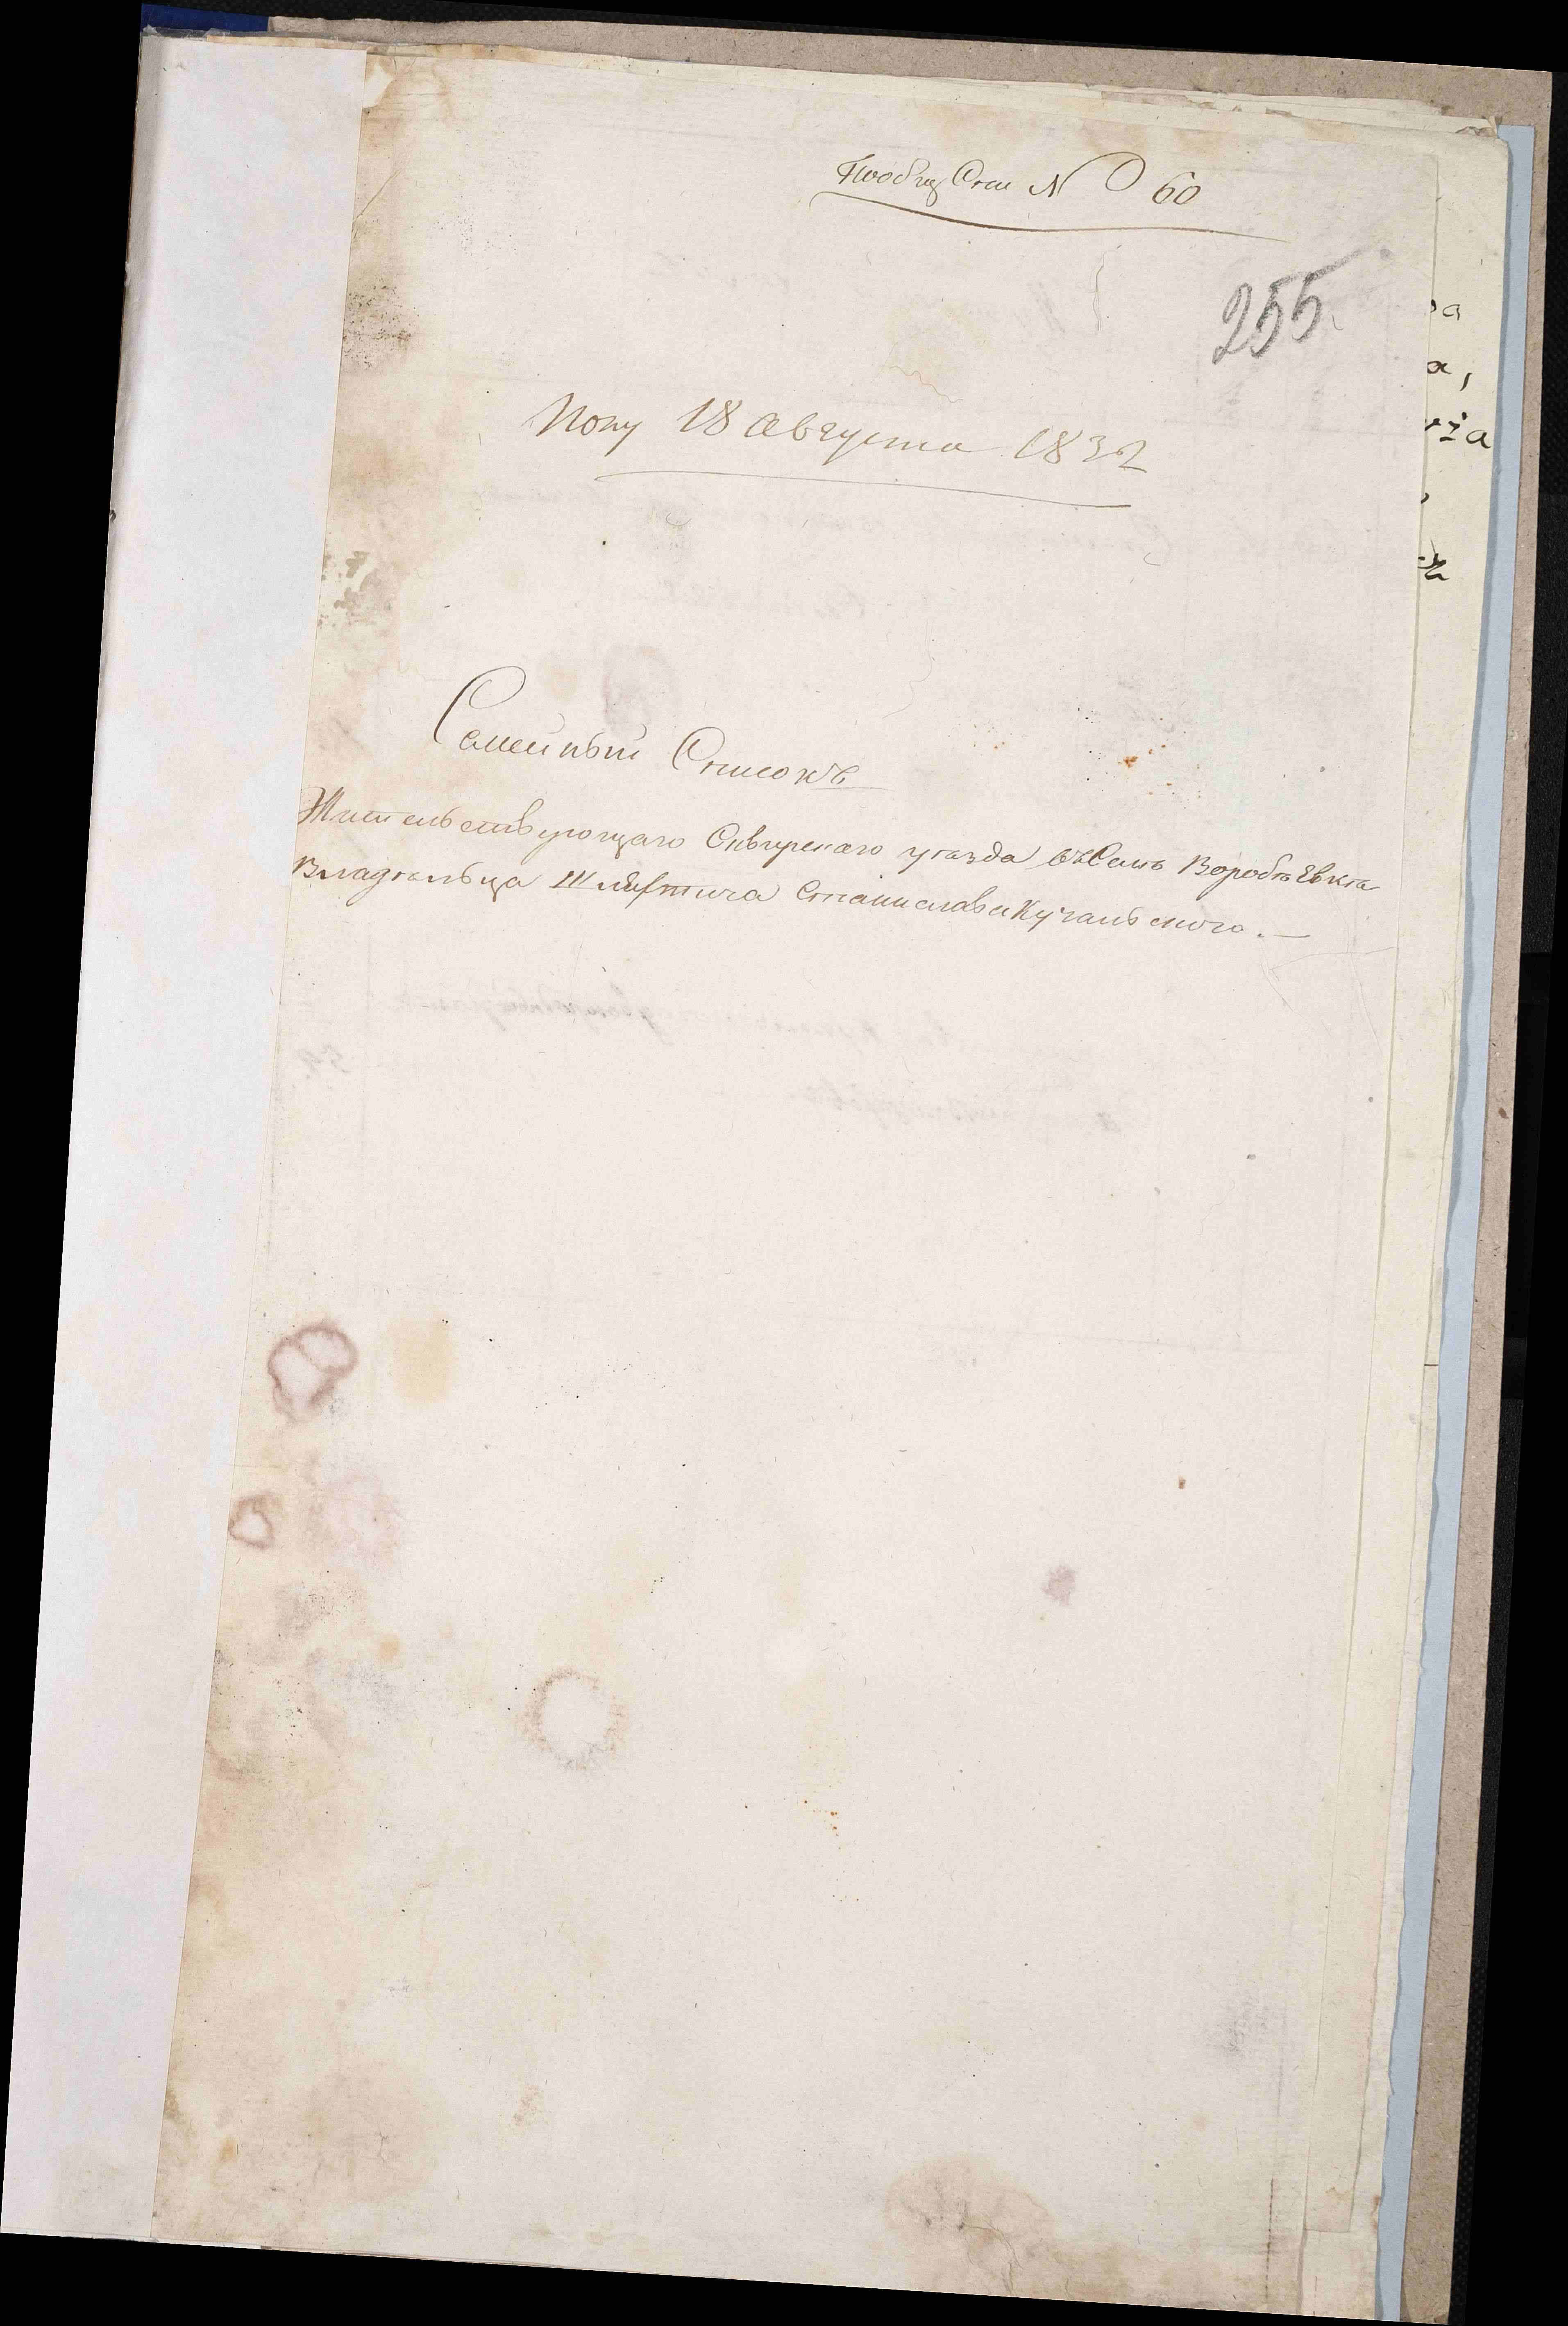 Пообщ Спи № 60
255
Полу 18 Августа 1832
Семейный Списокъ
Жительствующаго Сквирскаго уезда въ Селѣ Воробіевкѣ
Владѣльца Шляхтича Станислава Кучальского. —